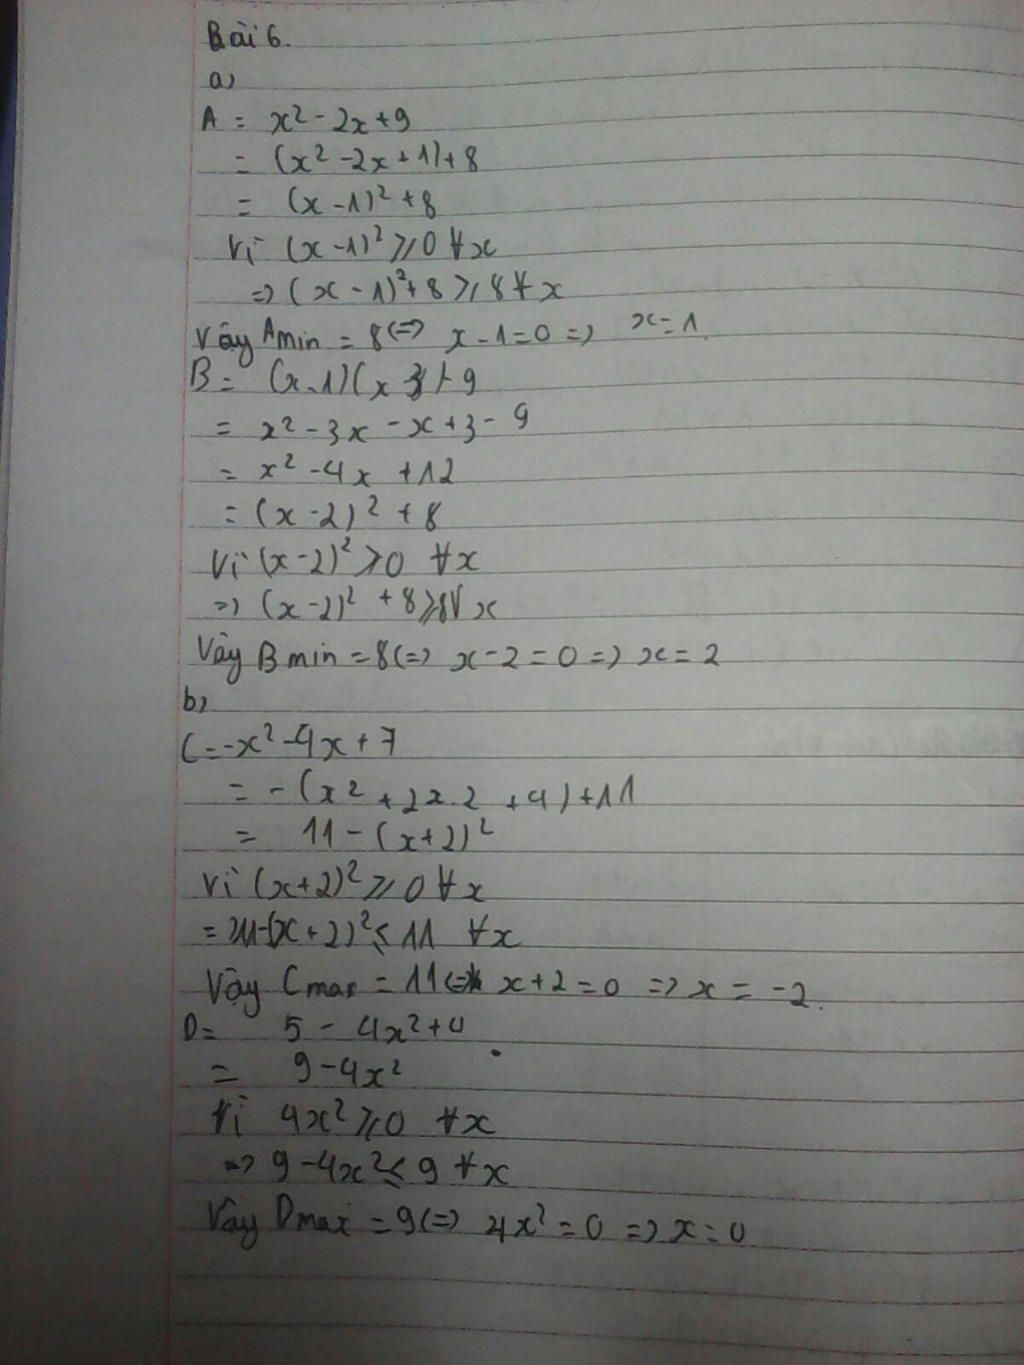 Bài 6.
a)
A = x² - 2x + 9
= (x² - 2x + 1) + 8
= (x - 1)² + 8
Vì (x - 1)² ≥ 0 ∀x
=> (x - 1)² + 8 ≥ 8 ∀x
Vậy Amin = 8 <=> x - 1 = 0 => x = 1
B = (x - 1)(x 3) + 9
= x² - 3x - x + 3 - 9
= x² - 4x + 12
= (x - 2)² + 8
Vì (x - 2)² ≥ 0 ∀x
=> (x - 2)² + 8 ≥ 8 ∀ x
Vậy B min = 8 <=> x - 2 = 0 => x = 2
b)
C = -x² - 4x + 7
= - (x² + 2x.2 + 4) + 11
= 11 - (x + 2)²
Vì (x + 2)² ≥ 0 ∀x
=> 11 - (x + 2)² ≤ 11 ∀x
Vậy Cmax = 11 <=> x + 2 = 0 => x = -2.
D = 5 - 4x² + 4
= 9 - 4x²
Vì 4x² ≥ 0 ∀x
=> 9 - 4x² ≤ 9 ∀x
Vậy Dmax = 9 <=> 4x² = 0 => x = 0